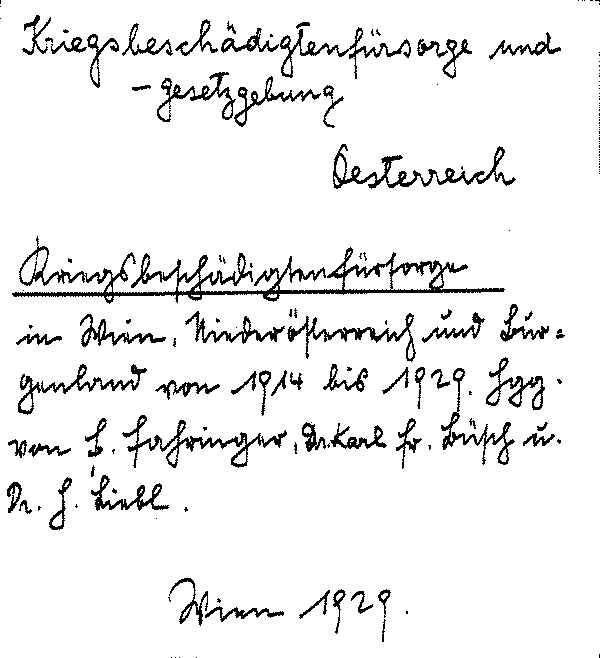 Kriegsbeschädigtenfürsorge und
- gesetzgebung
Oesterreich
Kriegsbeschädigtenfürsorge
in Wien, Niederösterreich und Bur=
genland von 1914 bis 1929. Hgg.
von Fahringer, Dr. Karl Fr. Büsch u.
Dr. H. Liebl.
Wien 1929.